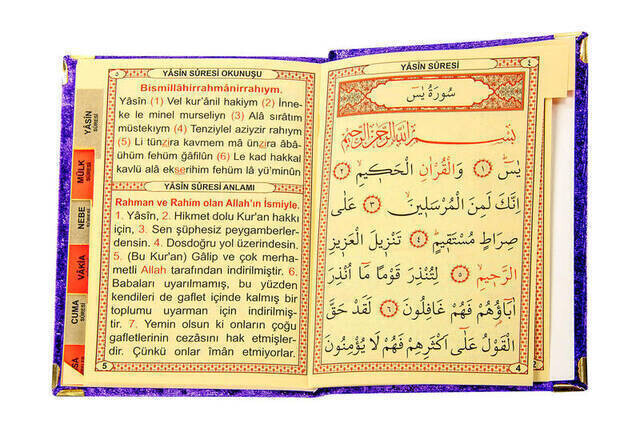 ٥
YÂSİN SÛRESİ OKUNUŞU
Bismillâhirrahmânirrahıym.
Yâsîn (1) Vel kur'ânil hakiym (2) İnne-
ke le minel murseliyn (3) Alâ sırâtım
müstekıym (4) Tenziylel azîyzir rahıym
(5) Li tünzira kavmem mâ ünzira âbâ-
ühüm fehüm ğâfilûn (6) Le kad hakkal
kavlü alâ ekserihim fehüm lâ yü'minûn
YÂSİN SÛRESİ ANLAMI
Rahman ve Rahim olan Allah'ın İsmiyle.
1. Yâsîn, 2. Hikmet dolu Kur'an hakkı
için, 3. Sen şüphesiz peygamberler-
densin. 4. Dosdoğru yol üzerindesin.
5. (Bu Kur'an) Gâlip ve çok merha-
metli Allah tarafından indirilmiştir. 6.
Babaları uyarılmamış, bu yüzden
kendileri de gaflet içinde kalmış bir
toplumu uyarman için indirilmiş-
tir. 7. Yemin olsun ki onların çoğu
gafletlerinin cezasını hak etmişler-
dir. Çünkü onlar îmân etmiyorlar.
5
YÂSİN SÛRESİ
MÜLK SÛRESİ
NEBE SÛRESİ
VÂKIA
CUMA SÛRESİ
YÂSİN SÛRESİ
٤
سُورَةُ يٰسٓ
بِسْمِ اللّٰهِ الرَّحْمٰنِ الرَّحِيمِ
يٰسٓ ﴿١﴾ وَالْقُرْاٰنِ الْحَكِيمِ ﴿٢﴾
اِنَّكَ لَمِنَ الْمُرْسَلِينَ ﴿٣﴾ عَلٰى
صِرَاطٍ مُسْتَقِيمٍ ﴿٤﴾ تَنْزِيلَ الْعَزِيزِ
الرَّحِيمِ ﴿٥﴾ لِتُنْذِرَ قَوْمًا مَٓا اُنْذِرَ
اٰبَٓاؤُ۬هُمْ فَهُمْ غَافِلُونَ ﴿٦﴾ لَقَدْ حَقَّ
الْقَوْلُ عَلٰٓى اَكْثَرِهِمْ فَهُمْ لَا يُؤْمِنُونَ
4
2